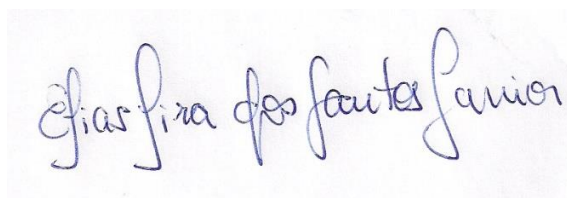 Elias Lira dos Santos Junior